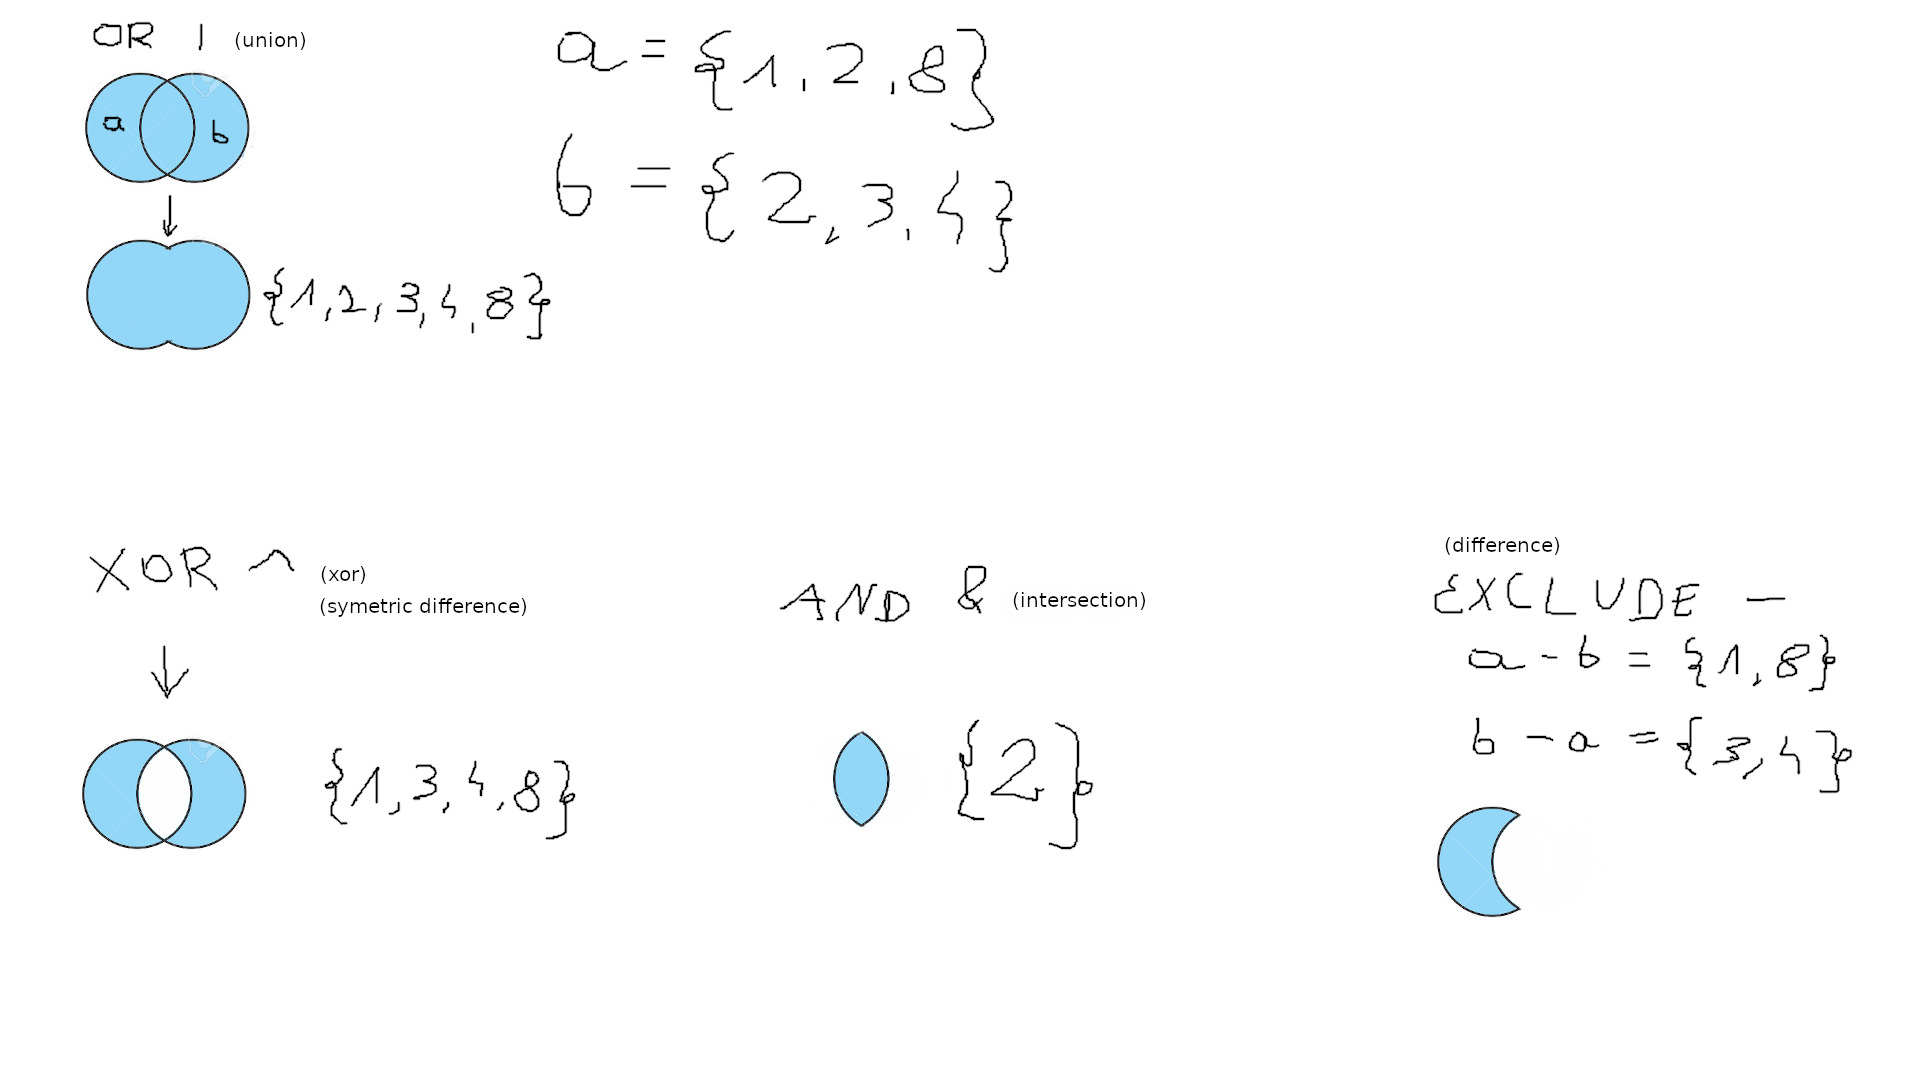 OR | (union)
a = {1, 2, 8}
a b
b = {2, 3, 4}
{1, 2, 3, 4, 8}
XOR ^ (xor)
(symetric difference)
{1, 3, 4, 8}
AND & (intersection)
{2}
(difference)
EXCLUDE -
a - b = {1, 8}
b - a = {3, 4}